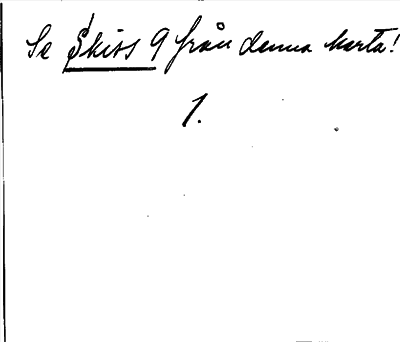 Se Skiss 9 från denna karta!
1.